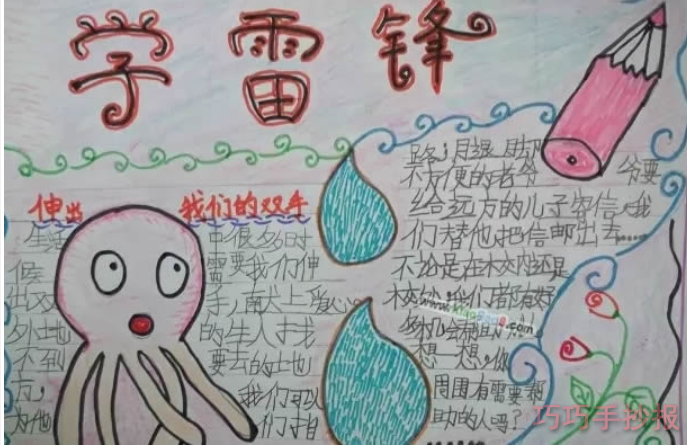 学雷锋
伸出 我们的双手
生活 中很多时
候 需要我们伸
出双 手,献上爱心。
外地 的生人找
不到 要去的地
方, 我们可以
为他 们指
路;月
不方便的老爷 爷要
给远方的儿子寄信,我
们替他把信邮出去……
不论是在校内还是
校 我们都有好
多机会帮助
想一想,你
周围有需要帮
助的人吗?
www.
巧巧手抄报